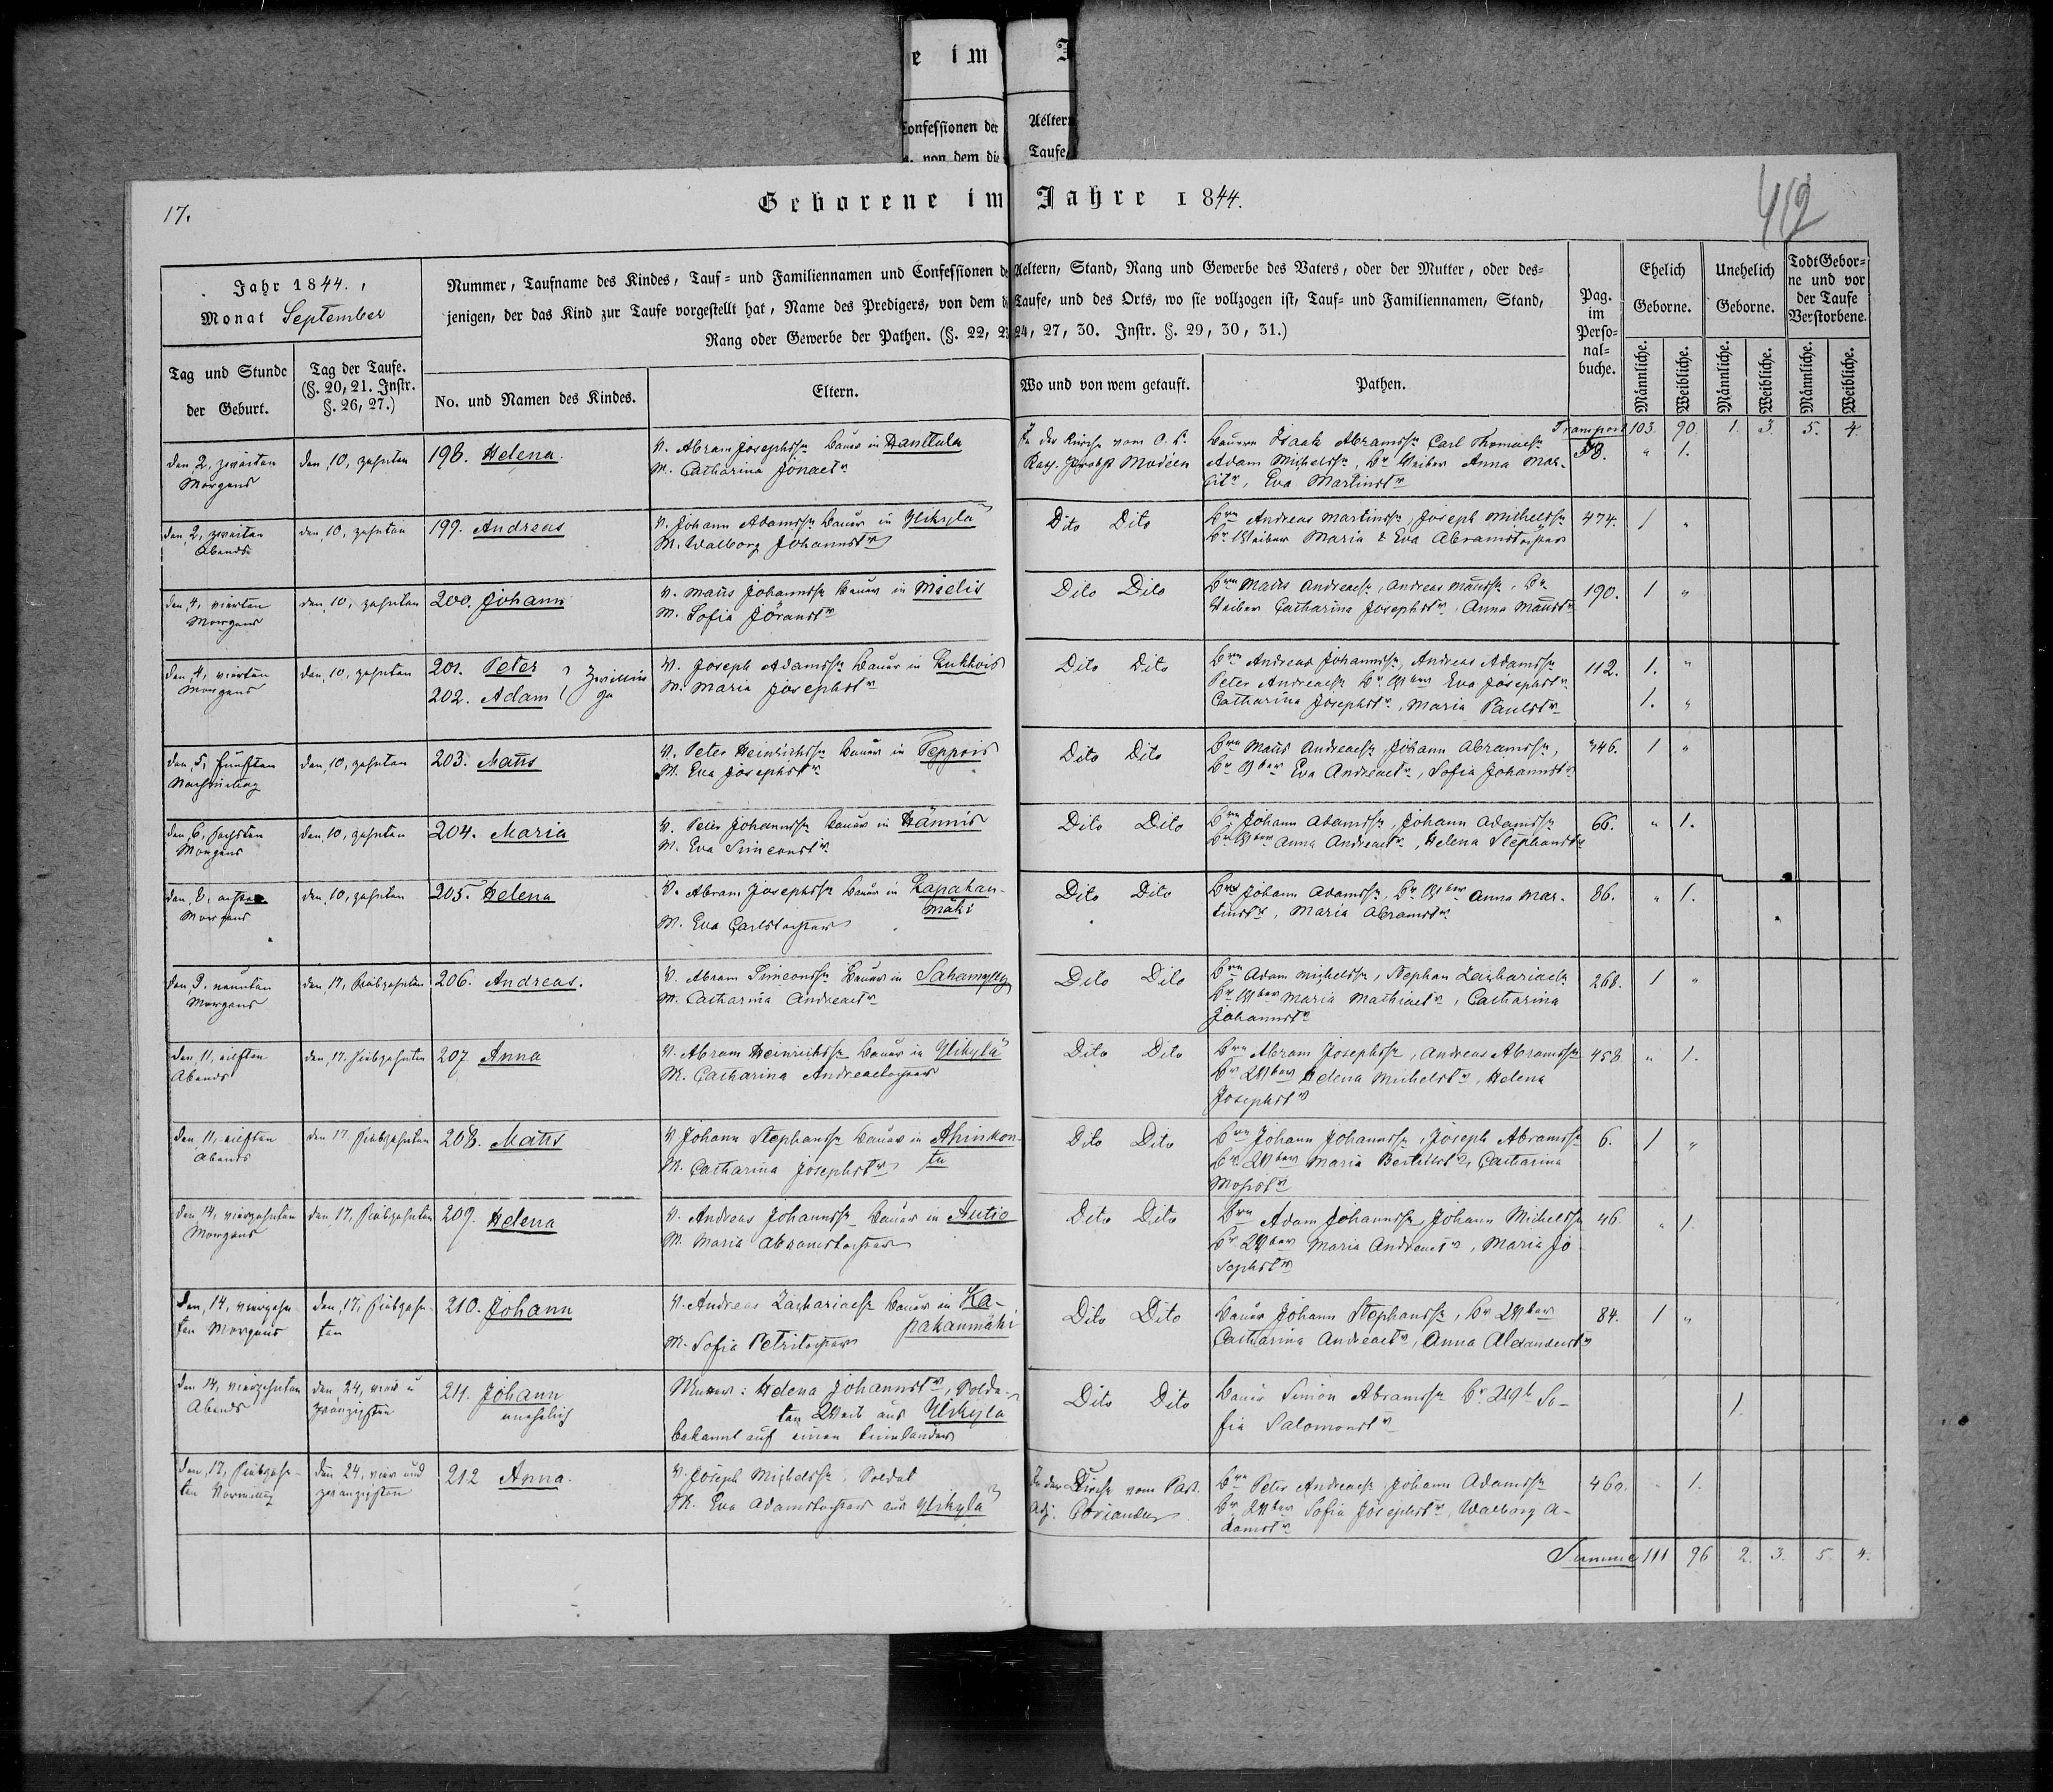 e im J
Confessionen der Aelter
. von dem die Taufe
17.
Geborene im Jahre 1844.
412
Jahr 1844.
Monat September
Nummer, Taufname des Kindes, Tauf- und Familiennamen und Confessionen de Aeltern, Stand, Rang und Gewerbe des Vaters, oder der Mutter, oder des-
jenigen, der das Kind zur Taufe vorgestellt hat, Name des Predigers, von dem d Taufe, und des Orts, wo sie vollzogen ist, Tauf- und Familiennamen, Stand,
Rang oder Gewerbe der Pathen. (§. 22, 23 24, 27, 30. Instr. §. 29, 30, 31.)
Pag. im Perso-nal-buche.
Ehelich Geborne.
Unehelich Geborne.
Todt Gebor-ne und vor der Taufe Verstorbene.
Tag und Stunde der Geburt.
Tag der Taufe. (§. 20, 21. Instr. §. 26, 27.)
No. und Namen des Kindes.
Eltern.
Wo und von wem getauft.
Pathen.
Männliche. Weibliche. Männliche. Weibliche. Männliche. Weibliche.
Transport 103. 90. 1. 3. 5. 4.
den, 2, zweiten Morgens
den, 10, zehnten
198. Helena.
V. Abram Josephssn Bauer in Hanttula
M. Catharina Jonaetr
In der Kirche vom
Probst Modeen
Bauern Isaak Abramssn Carl Thomaesn
Adam Michelssn, Br Weiber Anna Mar-
titr, Eva Martinstr
58. " 1.
den, 2, zweiten Abends
den, 10, zehnten
199. Andreas
V. Johann Adamssn Bauer in Ylikylä
M. Walborg Johannstr
Dito Dito
Brn Andreas Martinssn, Joseph Michelssn
Br Weiber Maria & Eva Abramstöchter
474. 1 "
den, 4, vierten Morgens
den, 10, zehnten
200. Johann
V. Matts Johannssn Bauer in Mielis
M. Sofia Jöranstr
Dito Dito
Brn Matts Andreaesn, Andreas Mattssn, Br
Weiber Catharina Josephstr, Anna Mattstr
190. 1 "
den, 4, vierten Morgens
den, 10, zehnten
201. Peter
202. Adam
Zwillinge
V. Joseph Adamssn Bauer in Kukkois
M. Maria Josephstr
Dito Dito
Brn Andreas Johannssn, Andreas Adamssn
Peter Andreaesn Br Wber Eva Josephstr
Catharina Josephstr, Maria Paulstr
112. 1. "
1. "
den, 5, fünften Nachmittag
den, 10, zehnten
203. Matts
V. Peter Heinrichssn Bauer in Peppois
M. Eva Josephstr
Dito Dito
Brn Matts Andreaesn, Johann Abramssn,
Br Wber Eva Andreaetr, Sofia Johannstr
346. 1 "
den, 6, sechsten Morgens
den, 10, zehnten
204. Maria
V. Peter Johannssn Bauer in Hännis
M. Eva Simeonstr
Dito Dito
Brn Johann Adamssn, Johann Adamssn
Br Wber Anna Andreaetr, Helena Stephanstr
66. " 1.
den, 8, achten Morgens
den, 10, zehnten
205. Helena
V. Abram Josephssn Bauer in Kapakan-
mäki
M. Eva Carlstochter
Dito Dito
Brn Johann Adamssn, Br Wber Anna Mar-
tinstr, Maria Abramstr
86. " 1.
den, 9, neunten Morgens
den, 17, siebzehnten
206. Andreas.
V. Abram Simeonssn Bauer in Sahamylly
M. Catharina Andreaetr
Dito Dito
Brn Adam Michelssn, Stephan Zachariaesn
Br Wber Maria Mathiaetr, Catharina
Johannstr
268. 1 "
den, 11, eilften Abends
den, 17, siebzehnten
207 Anna
V. Abram Heinrichssn Bauer in Ylikylä
M. Catharina Andreaetochter
Dito Dito
Brn Abram Josephssn, Andreas Abramssn
Br Wber Helena Michelstr, Helena
Josephstr
458 " 1.
den, 11, eilften Abends
den 17 siebzehnten
208. Matts
V Johann Stephanssn Bauer in Ahinkon-
tu
M. Catharina Josephstr
Dito Dito
Brn Johann Johannssn, Joseph Abramssn
Br Wber Maria Bertilstr, Catharina
Mosestr
6. 1 "
den 14, vierzehnten Morgens
den, 17, siebzehnten
209. Helena
V. Andreas Johannssn Bauer in Autio
M. Maria Abramstochter
Dito Dito
Brn Adam Johannssn, Johann Michelssn
Br Wber Maria Andreaetr, Maria Jo-
sephstr
46. " 1.
den, 14, vierzehn-
ten Morgens
den, 17, siebzehn-
ten
210. Johann
V. Andreas Zachariaesn Bauer in Ka-
pakanmäki
M. Sofia Petritochter
Dito Dito
Bauer Johann Stephanssn, Br Wber
Catharina Andreaetr, Anna Alexanderstr
84. 1 "
den 14, vierzehnten Abends
den, 24, vier u
zwanzigsten
211. Johann
unehelich
Mutter: Helena Johannstr, Solda-
ten Weib aus Ylikylä
bekannt auf einen
Dito Dito
Bauer Simon Abramssn Br Wb So-
fia Salomonstr
1.
den, 17, siebzehn-
ten Vormittag
den 24, vier und
zwanzigsten
212 Anna.
V. Joseph Michelssn, Soldat
M. Eva Adamstochter aus Ylikylä
In der Kirche vom Past.
Adj. Coriander
Brn Peter Andreaesn Johann Adamssn
Br Wber Sofia Josephstr, Walborg A-
damstr
460. " 1.
Summe 111 96 2. 3. 5. 4.